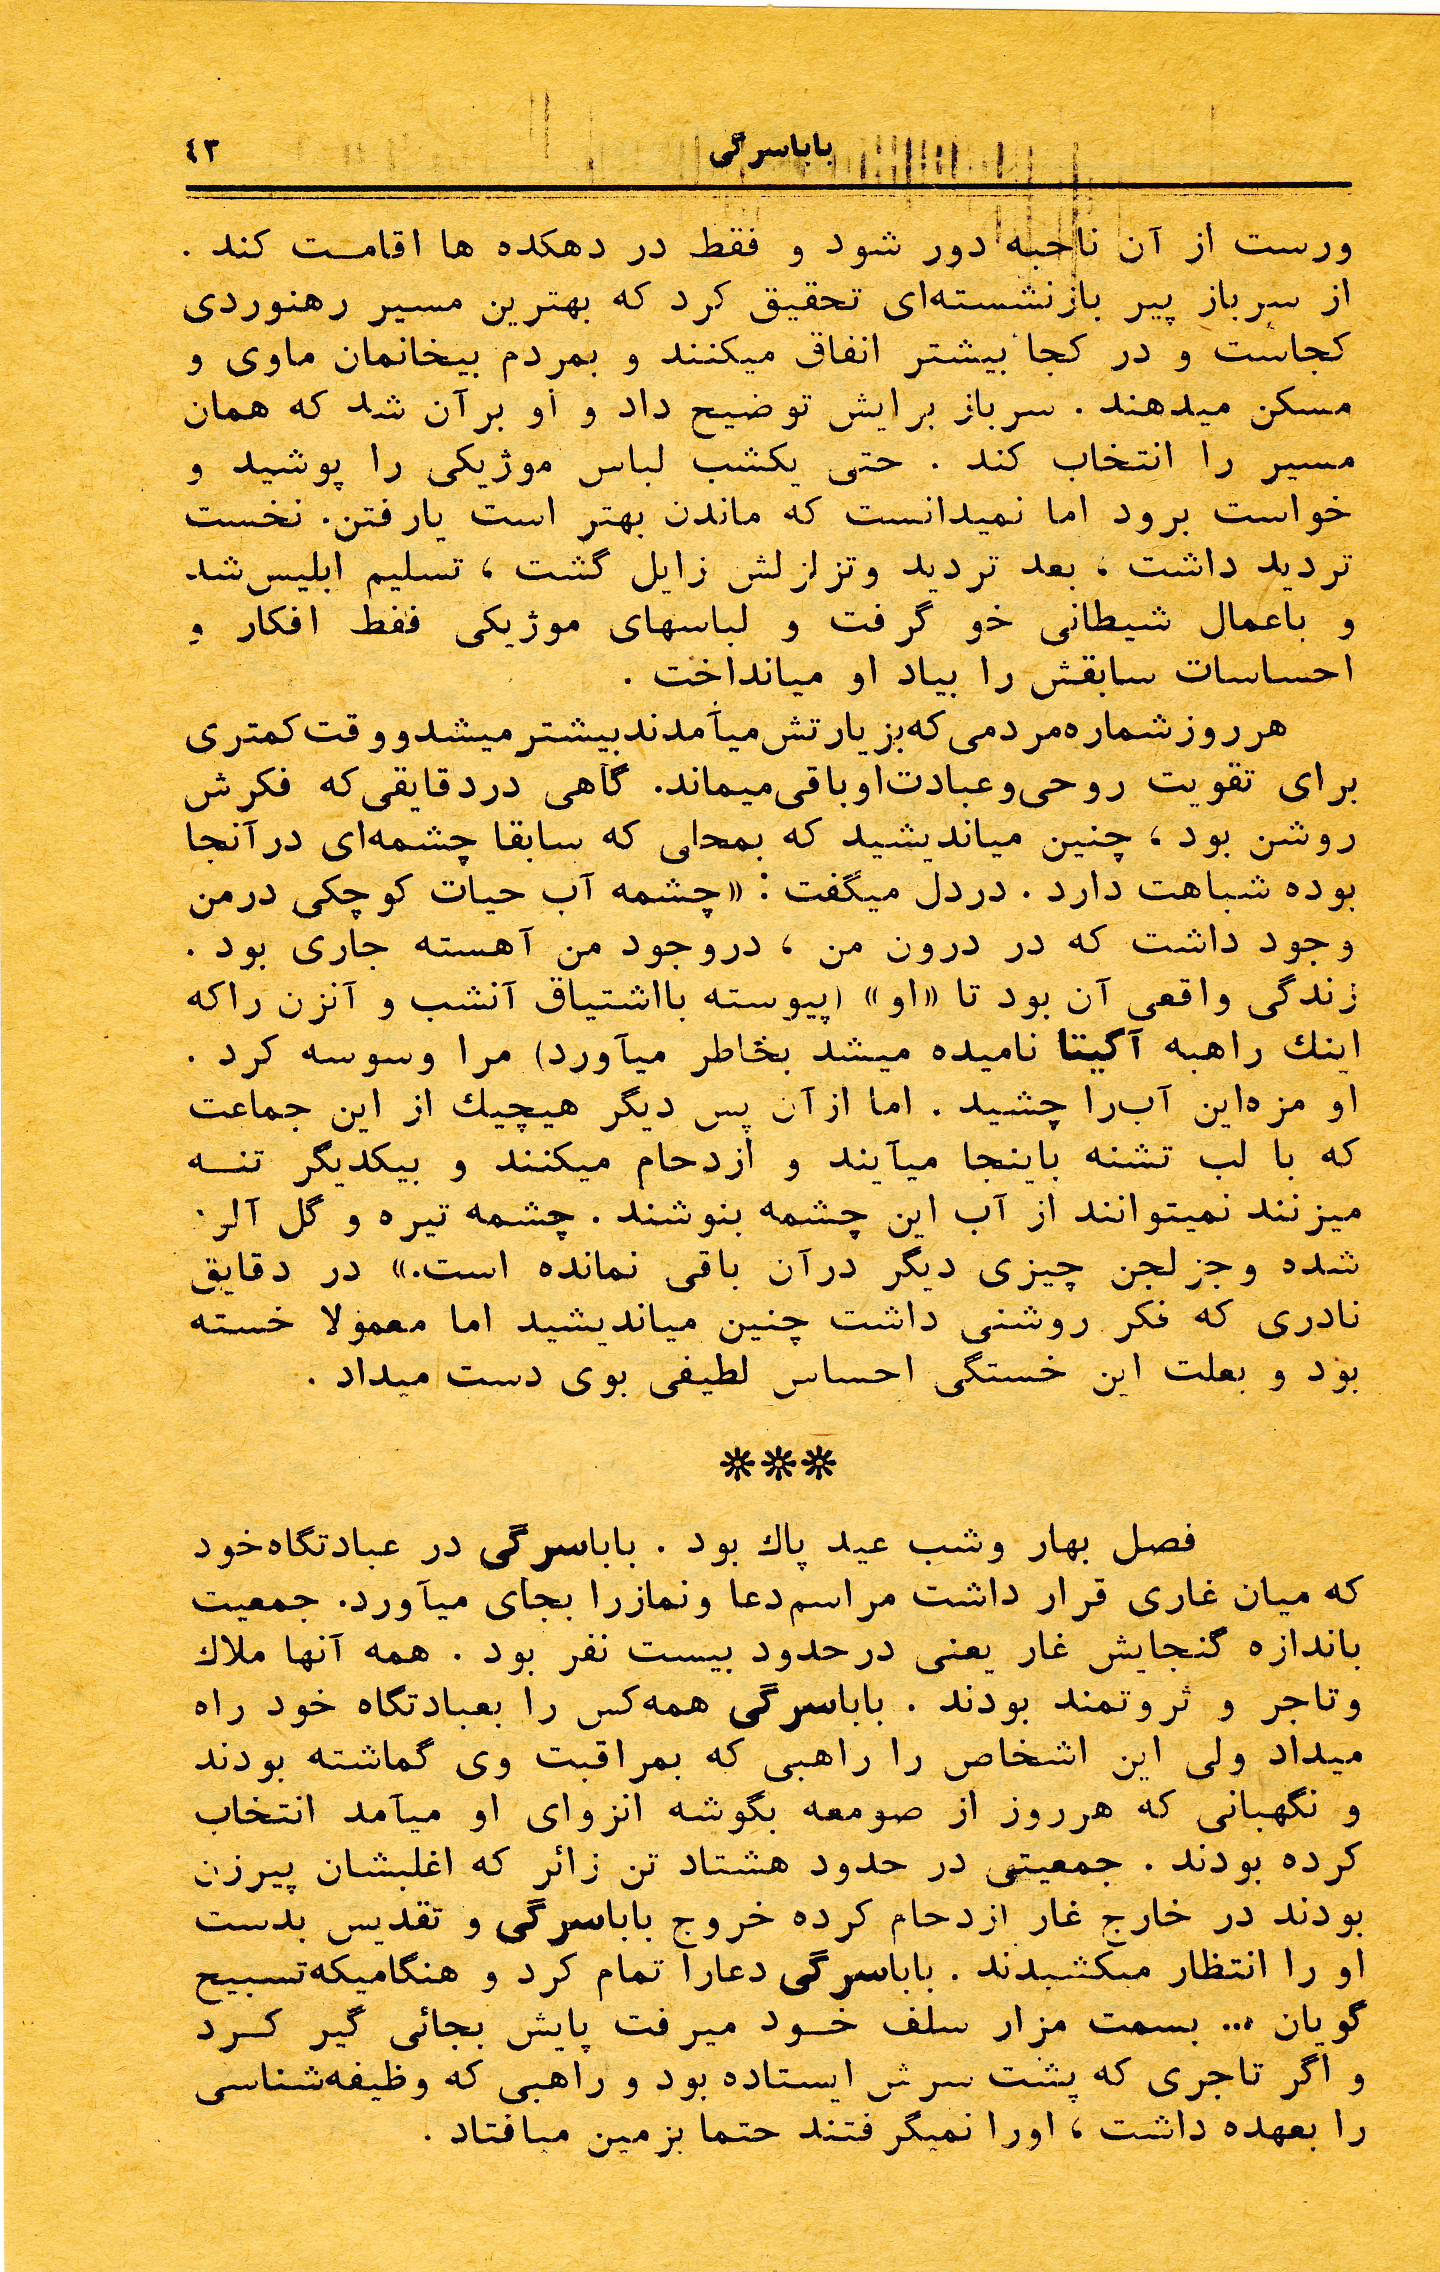 باباسرگی ٤٣
ورست از آن ناحیه دور شود و فقط در دهکده ها اقامت کند .
از سرباز پیر بازنشسته‌ای تحقیق کرد که بهترین مسیر رهنوردی
کجاست و در کجا بیشتر انفاق میکنند و بمردم بیخانمان ماوی و
مسکن میدهند . سرباز برایش توضیح داد و او برآن شد که همان
مسیر را انتخاب کند . حتی یکشب لباس موژیکی را پوشید و
خواست برود اما نمیدانست که ماندن بهتر است یارفتن. نخست
تردید داشت ، بعد تردید وتزلزلش زایل گشت ، تسلیم ابلیس‌شد
و باعمال شیطانی خو گرفت و لباسهای موژیکی فقط افکار و
احساسات سابقش را بیاد او میانداخت .
هرروزشماره‌مردمی‌که‌بزیارتش‌میآمدندبیشترمیشدووقت‌کمتری
برای تقویت روحی‌وعبادت‌اوباقی‌میماند. گاهی دردقایقی‌که فکرش
روشن بود ، چنین میاندیشید که بمحلی که سابقا چشمه‌ای درآنجا
بوده شباهت دارد . دردل میگفت : «چشمه آب حیات کوچکی درمن
وجود داشت که در درون من ، دروجود من آهسته جاری بود .
زندگی واقعی آن بود تا «او» (پیوسته بااشتیاق آنشب و آنزن راکه
اینك راهبه آگیتا نامیده میشد بخاطر میآورد) مرا وسوسه کرد .
او مزه‌این آب‌را چشید . اما ازآن پس دیگر هیچیك از این جماعت
که با لب تشنه باینجا میآیند و ازدحام میکنند و بیکدیگر تنه
میزنند نمیتوانند از آب این چشمه بنوشند . چشمه تیره و گل آلود
شده وجز لجن چیزی دیگر درآن باقی نمانده است.» در دقایق
نادری که فکر روشنی داشت چنین میاندیشید اما معمولا خسته
بود و بعلت این خستگی احساس لطیفی بوی دست میداد .
***
فصل بهار وشب عید پاك بود . باباسرگی در عبادتگاه‌خود
که میان غاری قرار داشت مراسم‌دعا ونمازرا بجای میآورد. جمعیت
باندازه گنجایش غار یعنی درحدود بیست نفر بود . همه آنها ملاك
وتاجر و ثروتمند بودند . باباسرگی همه‌کس را بعبادتگاه خود راه
میداد ولی این اشخاص را راهبی که بمراقبت وی گماشته بودند
و نگهبانی که هرروز از صومعه بگوشه انزوای او میآمد انتخاب
کرده بودند . جمعیتی در حدود هشتاد تن زائر که اغلبشان پیرزن
بودند در خارج غار ازدحام کرده خروج باباسرگی و تقدیس بدست
او را انتظار میکشیدند . باباسرگی دعارا تمام کرد و هنگامیکه‌تسبیح
گویان ... بسمت مزار سلف خود میرفت پایش بجائی گیر کرد
و اگر تاجری که پشت سرش ایستاده بود و راهبی که وظیفه‌شناسی
را بعهده داشت ، اورا نمیگرفتند حتما بزمین میافتاد .